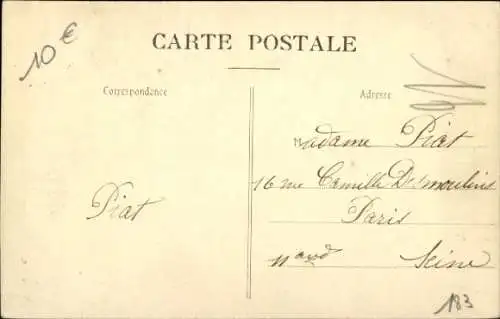 10€
CARTE POSTALE
Correspondance
Adresse
Madame Piat
16 rue Camille Desmoulins
Piat
Paris
11 arrd Seine
183